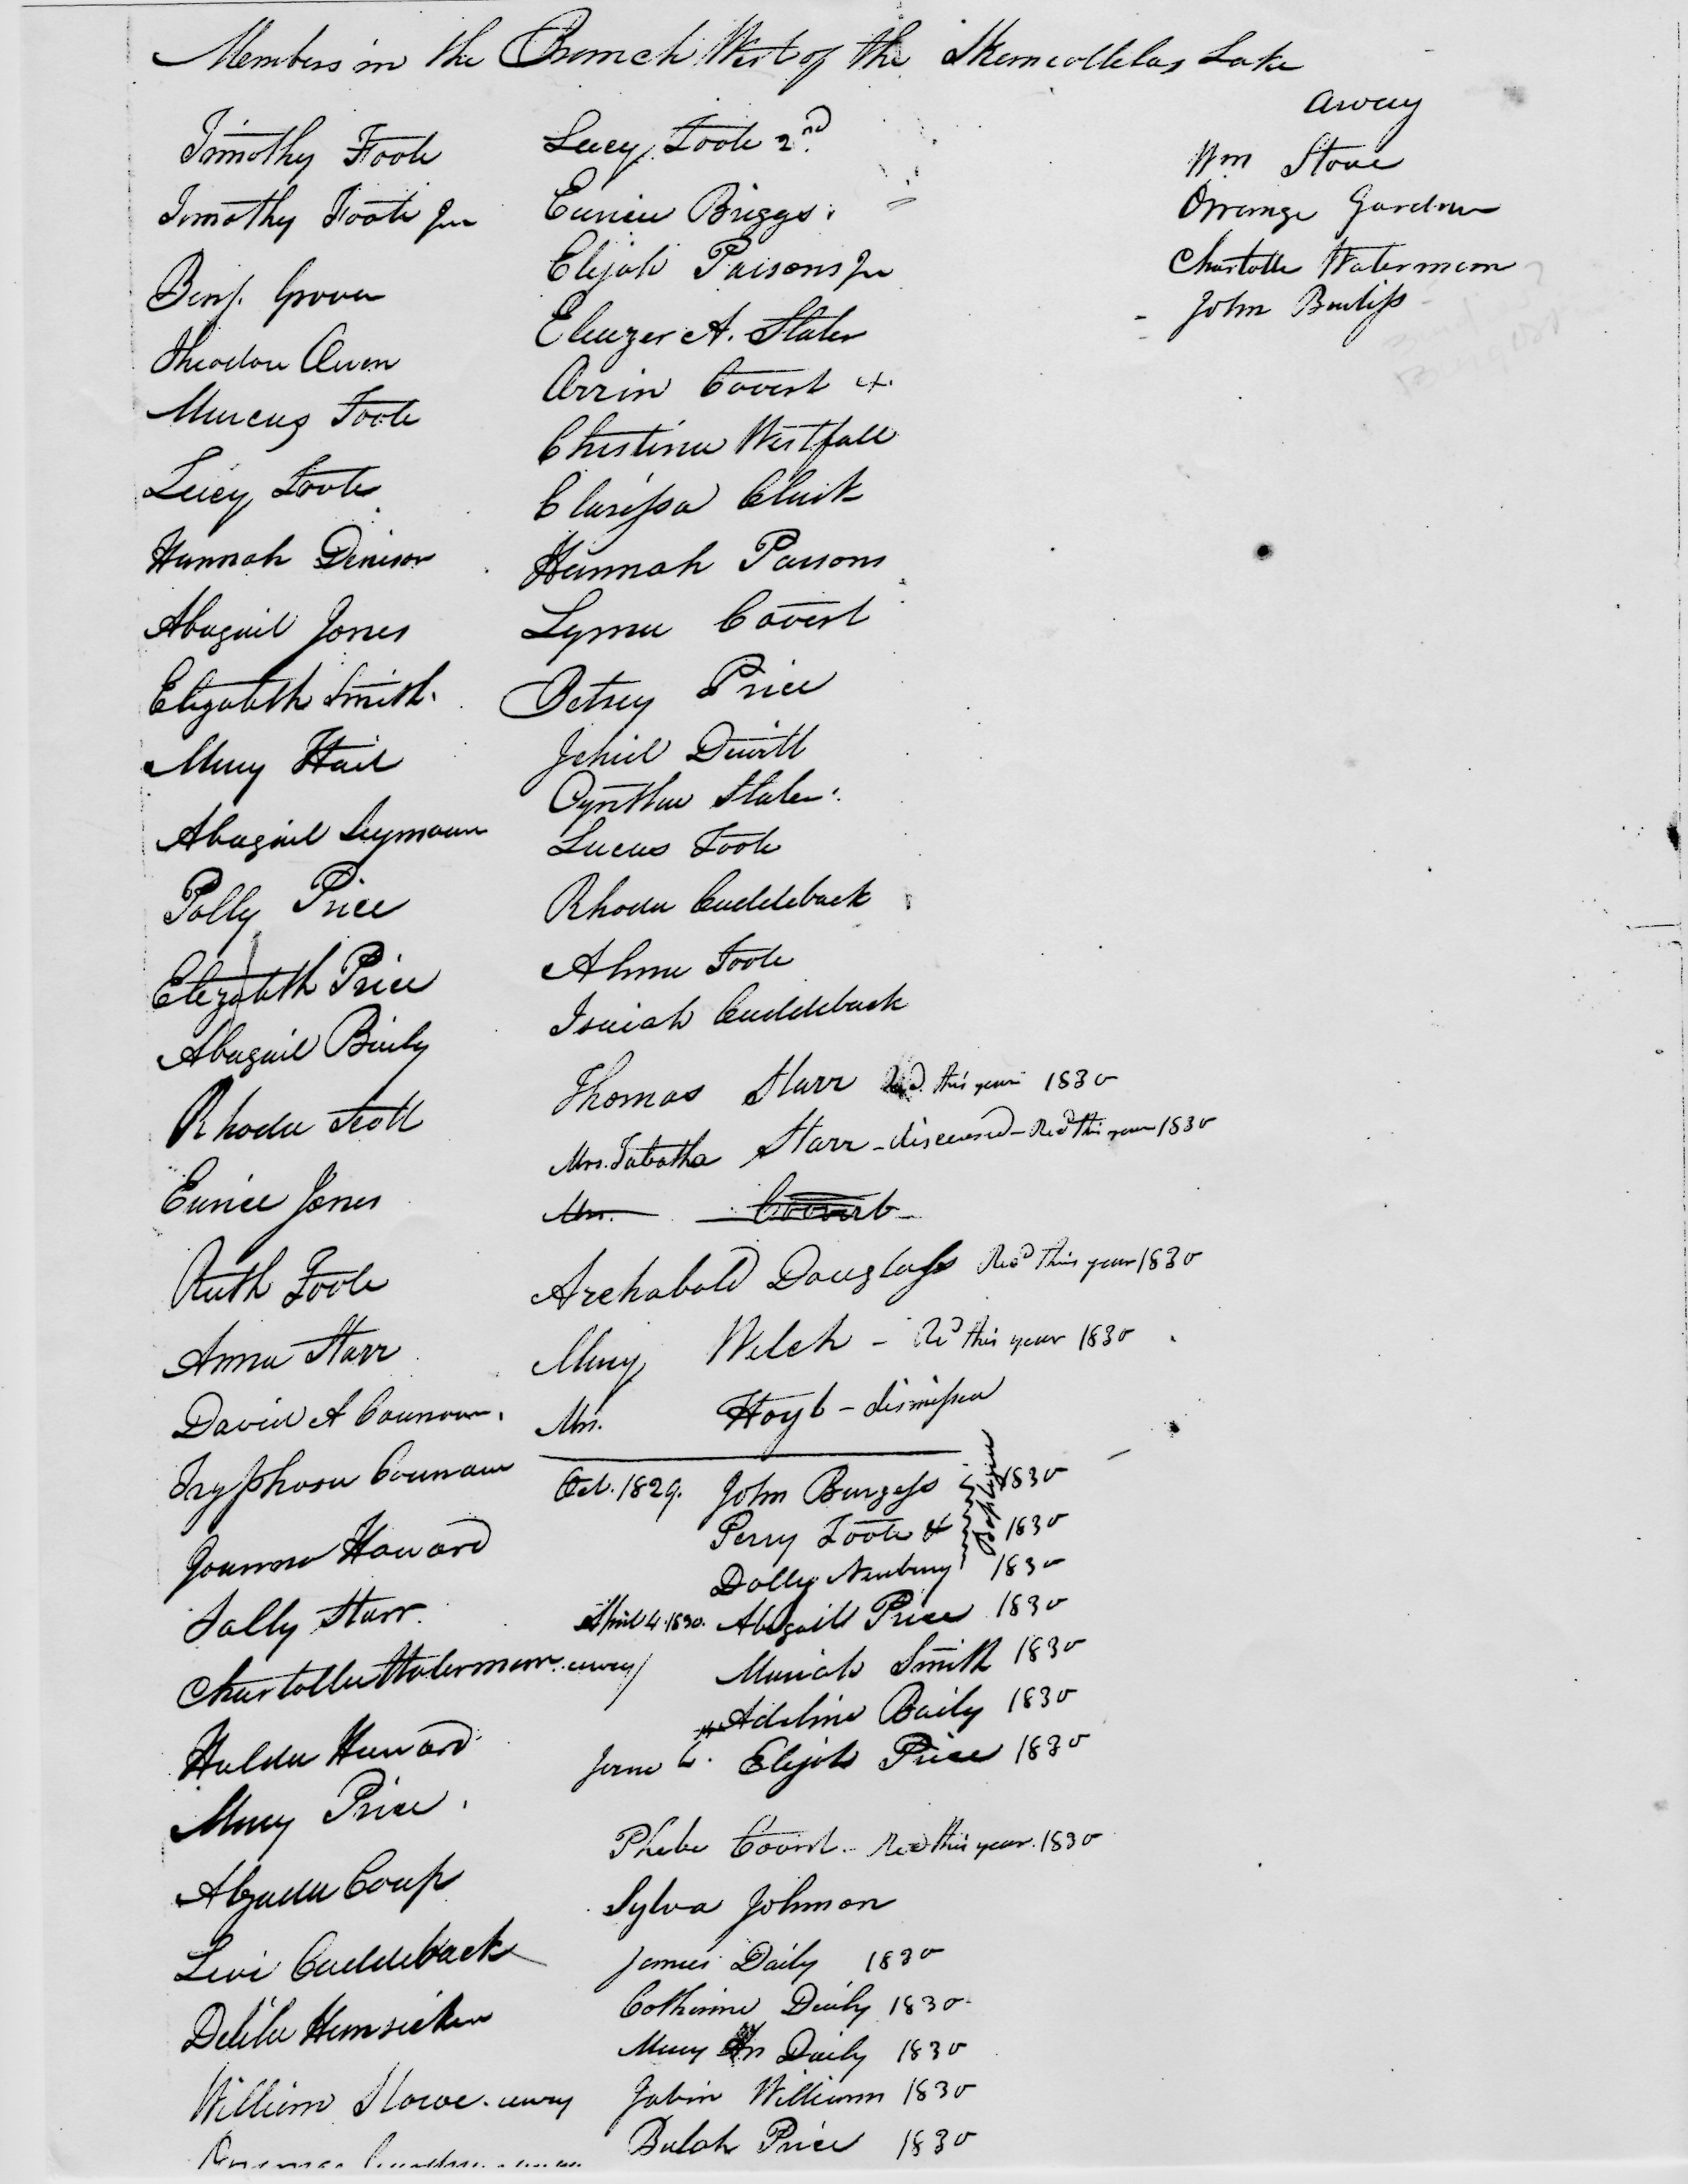 Members in the Branch West of the Skeneatelas Lake
Timothy Foote
Timothy Foote Jnr
Benj. Grover
Theodore Owen
Marcus Foote
Lucy Foote
Hannah Denison
Abagail Jones
Elizabeth Smith
Mary Hail
Abagail Seymour
Polly Price
Elezabeth Price
Abagail Baily
Rhoda Scott
Eunice Jones
Ruth Foote
Anna Starr
David A
Tryphosa
Joanna Howard
Sally Starr
Charlotte Waterman away
Huldu Howard
Mary Price
Levi Cuddeback
Delila
William Stowe. away
Lucy Foote 2nd
Eunice Briggs
Elijah Parsons Jnr
Eleazer A. Slater
Orrin Covert
Christina Westfall
Clarissa Clark
Hannah Parsons
Lyma Covert
Betsey Price
Jehiel Dewitt
Cynthia Slater
Lucus Foote
Rhoda Cuddeback
Alma Foote
Isaiah Cuddeback
Thomas Starr Recd. this year 1830
Mrs. Tabatha Starr - disceased - Recd this year 1830
Mrs. Covert
Archabald Douglass Recd this year 1830
Mary Welch - Recd this year 1830
Mrs. Hoyt - dismissed
Oct. 1829. John Burgess 1830
Perry Foote & 1830
Dolly Newbury 1830
baptized
April 4. 1830. Abigaill Price 1830
Mariah Smith 1830
Adeline Baily 1830
June 6. Elijah Price 1830
Phebe Covert - Recd this year. 1830
Sylva Johnson
James Daily 1830
Catherine Daily 1830
Mary An Daily 1830
Jabin Williams 1830
Bulah Price 1830
away
Wm Stowe
Orrange Gardner
Charlotte Waterman
John Burliss